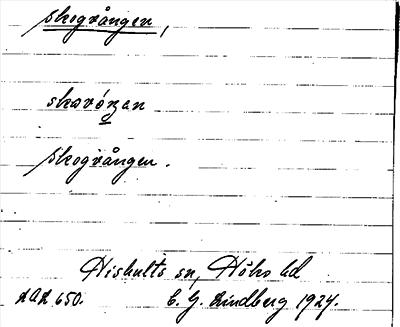 skogvången,
skavóŋan
skogvången.
Hishults sn, Höks hd
LAL 650. C. G. Lindberg 1924.